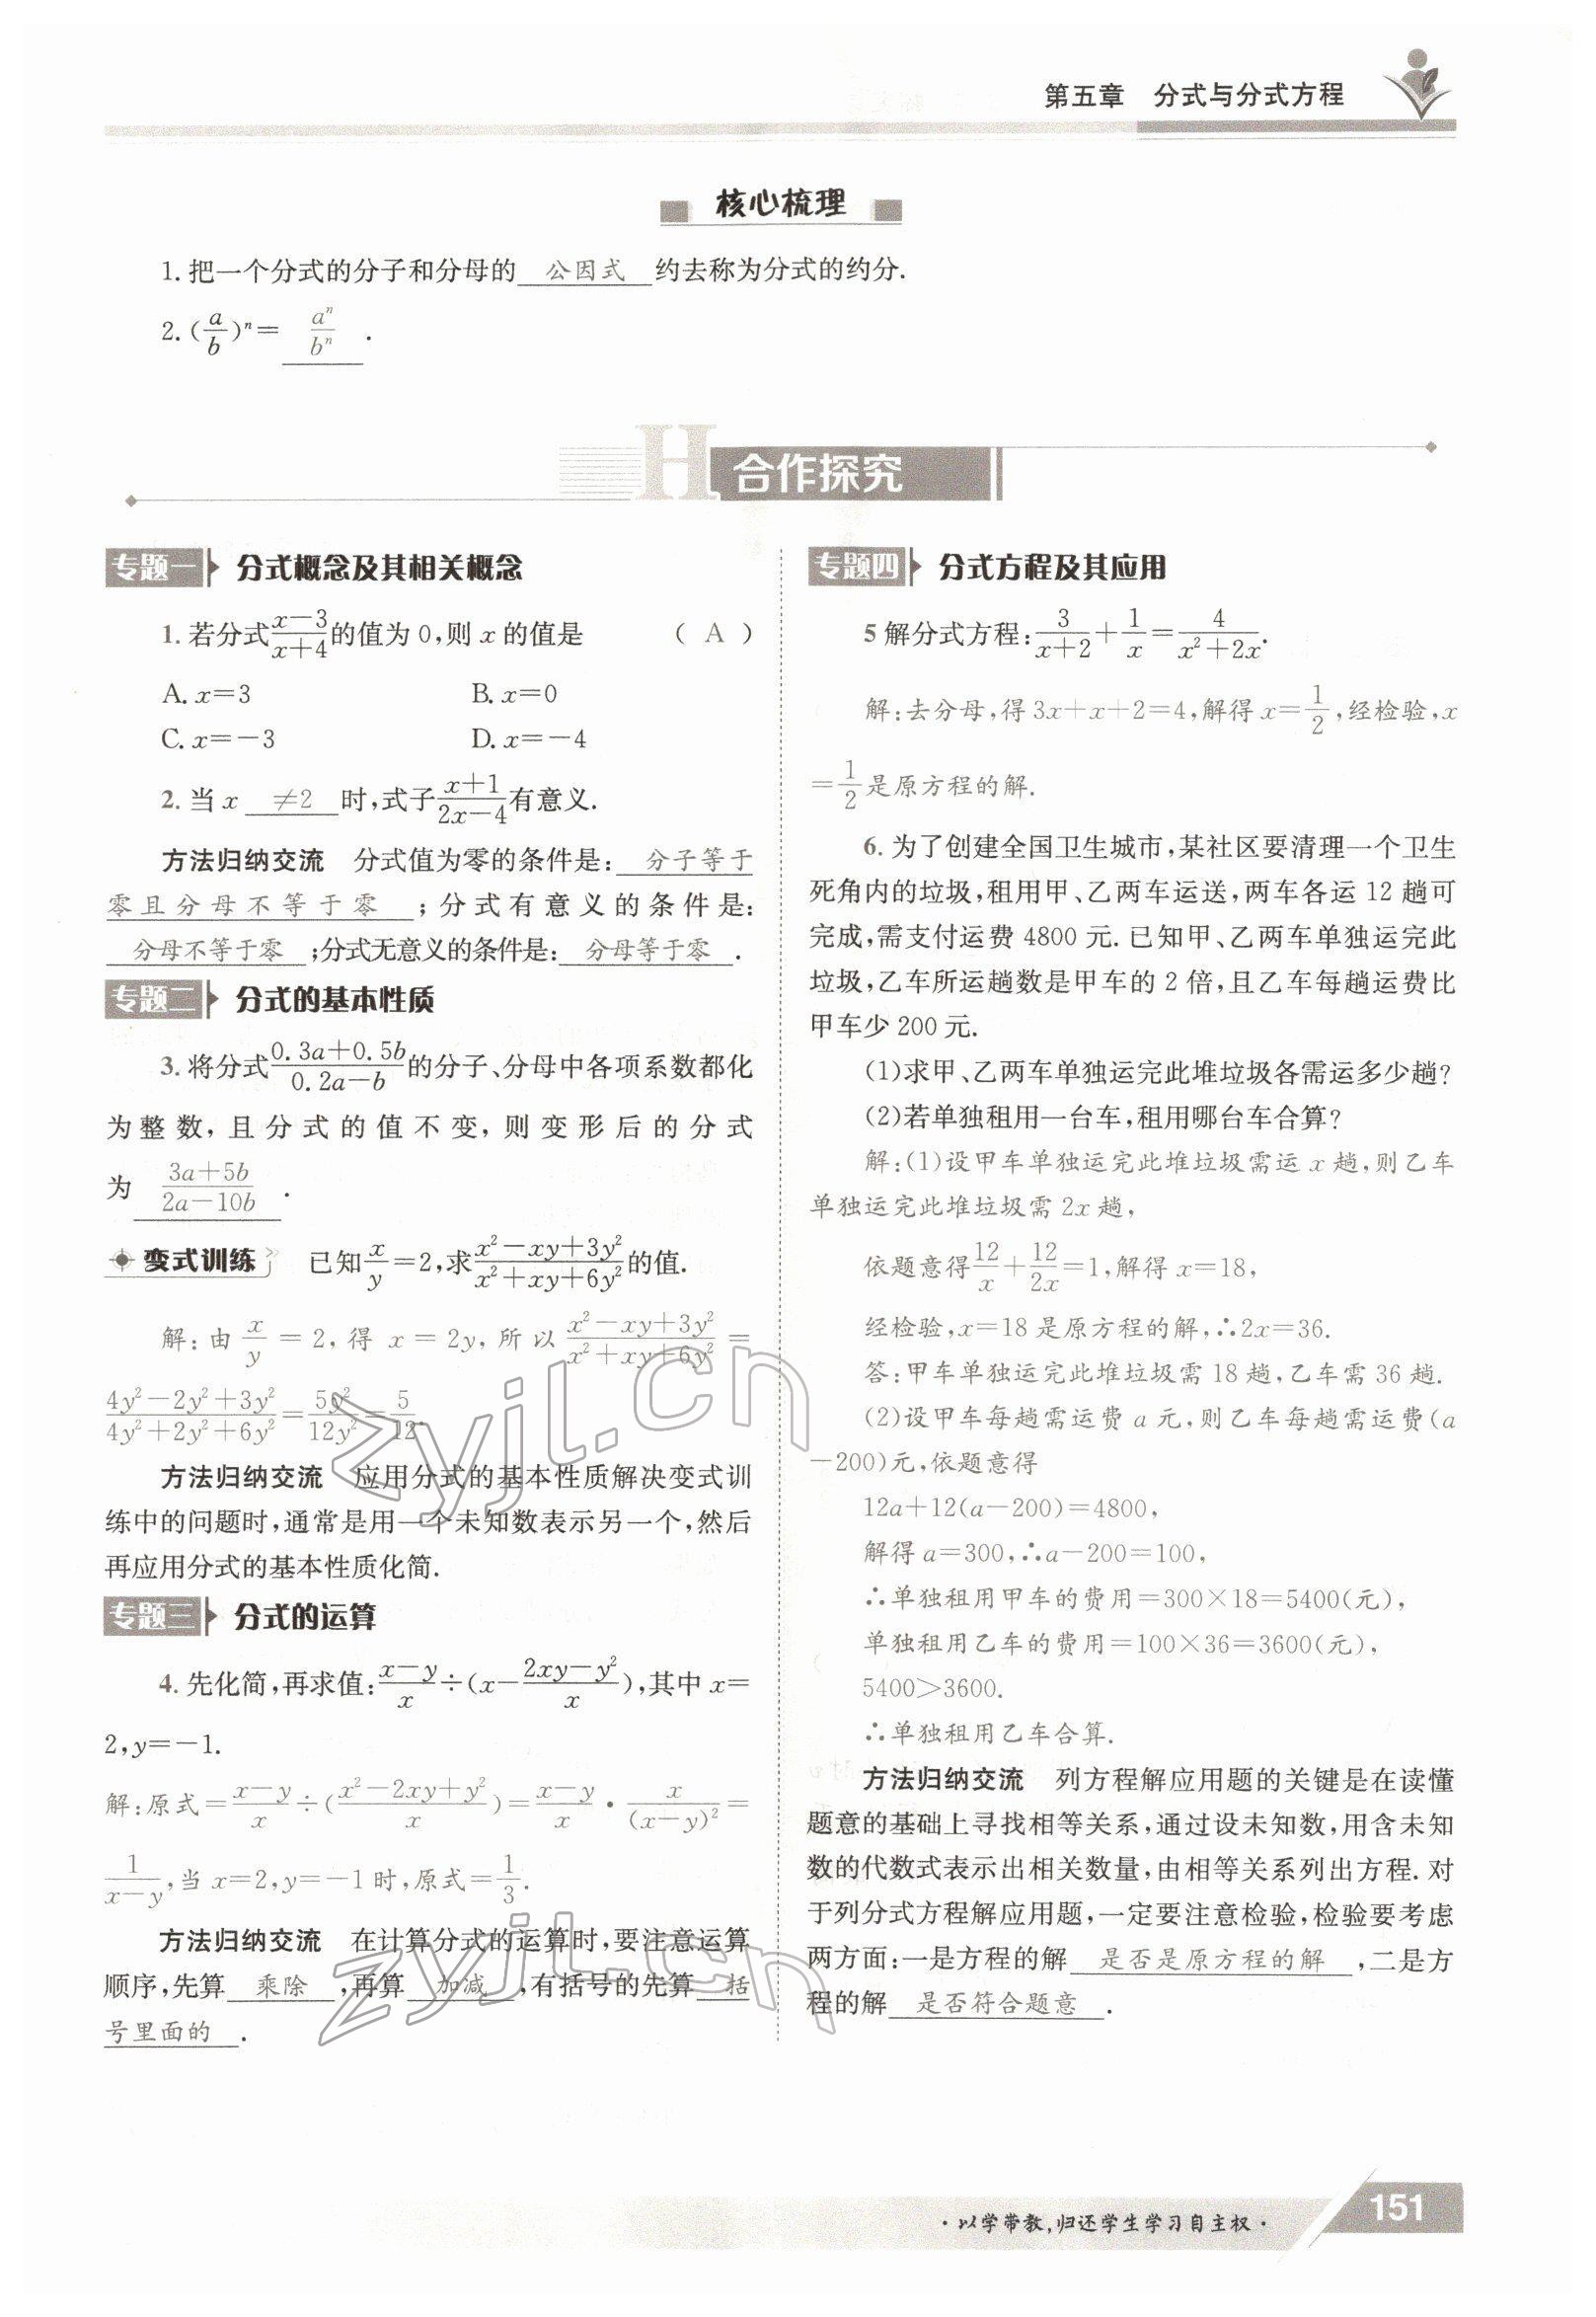 第五章 分式与分式方程
核心梳理
1.把一个分式的分子和分母的 公因式 约去称为分式的约分.
2.(a/b)ⁿ= aⁿ/bⁿ .
H 合作探究
专题一 分式概念及其相关概念
1.若分式(x-3)/(x+4)的值为0,则x的值是 ( A )
A.x=3 B.x=0
C.x=-3 D.x=-4
2.当x ≠2 时,式子(x+1)/(2x-4)有意义.
方法归纳交流 分式值为零的条件是: 分子等于
零且分母不等于零 ;分式有意义的条件是:
分母不等于零 ;分式无意义的条件是: 分母等于零 .
专题二 分式的基本性质
3.将分式(0.3a+0.5b)/(0.2a-b)的分子、分母中各项系数都化
为整数,且分式的值不变,则变形后的分式
为 (3a+5b)/(2a-10b) .
变式训练 已知x/y=2,求(x²-xy+3y²)/(x²+xy+6y²)的值.
解:由x/y=2,得x=2y,所以(x²-xy+3y²)/(x²+xy+6y²)=
(4y²-2y²+3y²)/(4y²+2y²+6y²)=5y²/12y²=5/12.
方法归纳交流 应用分式的基本性质解决变式训
练中的问题时,通常是用一个未知数表示另一个,然后
再应用分式的基本性质化简.
专题三 分式的运算
4.先化简,再求值:(x-y)/x÷(x-(2xy-y²)/x),其中x=
2,y=-1.
解:原式=(x-y)/x÷((x²-2xy+y²)/x)=(x-y)/x·x/(x-y)²=
1/(x-y),当x=2,y=-1时,原式=1/3.
方法归纳交流 在计算分式的运算时,要注意运算
顺序,先算 乘除 ,再算 加减 ,有括号的先算 括
号里面的 .
专题四 分式方程及其应用
5解分式方程:3/(x+2)+1/x=4/(x²+2x).
解:去分母,得3x+x+2=4,解得x=1/2,经检验,x
=1/2是原方程的解.
6.为了创建全国卫生城市,某社区要清理一个卫生
死角内的垃圾,租用甲、乙两车运送,两车各运12趟可
完成,需支付运费4800元.已知甲、乙两车单独运完此
垃圾,乙车所运趟数是甲车的2倍,且乙车每趟运费比
甲车少200元.
(1)求甲、乙两车单独运完此堆垃圾各需运多少趟?
(2)若单独租用一台车,租用哪台车合算?
解:(1)设甲车单独运完此堆垃圾需运x趟,则乙车
单独运完此堆垃圾需2x趟,
依题意得12/x+12/2x=1,解得x=18,
经检验,x=18是原方程的解,∴2x=36.
答:甲车单独运完此堆垃圾需18趟,乙车需36趟.
(2)设甲车每趟需运费a元,则乙车每趟需运费(a
-200)元,依题意得
12a+12(a-200)=4800,
解得a=300,∴a-200=100,
∴单独租用甲车的费用=300×18=5400(元),
单独租用乙车的费用=100×36=3600(元),
5400>3600.
∴单独租用乙车合算.
方法归纳交流 列方程解应用题的关键是在读懂
题意的基础上寻找相等关系,通过设未知数,用含未知
数的代数式表示出相关数量,由相等关系列出方程.对
于列分式方程解应用题,一定要注意检验,检验要考虑
两方面:一是方程的解 是否是原方程的解 ,二是方
程的解 是否符合题意 .
zyjl.cn
zyjl.cn
·以学带教,归还学生学习自主权·
151